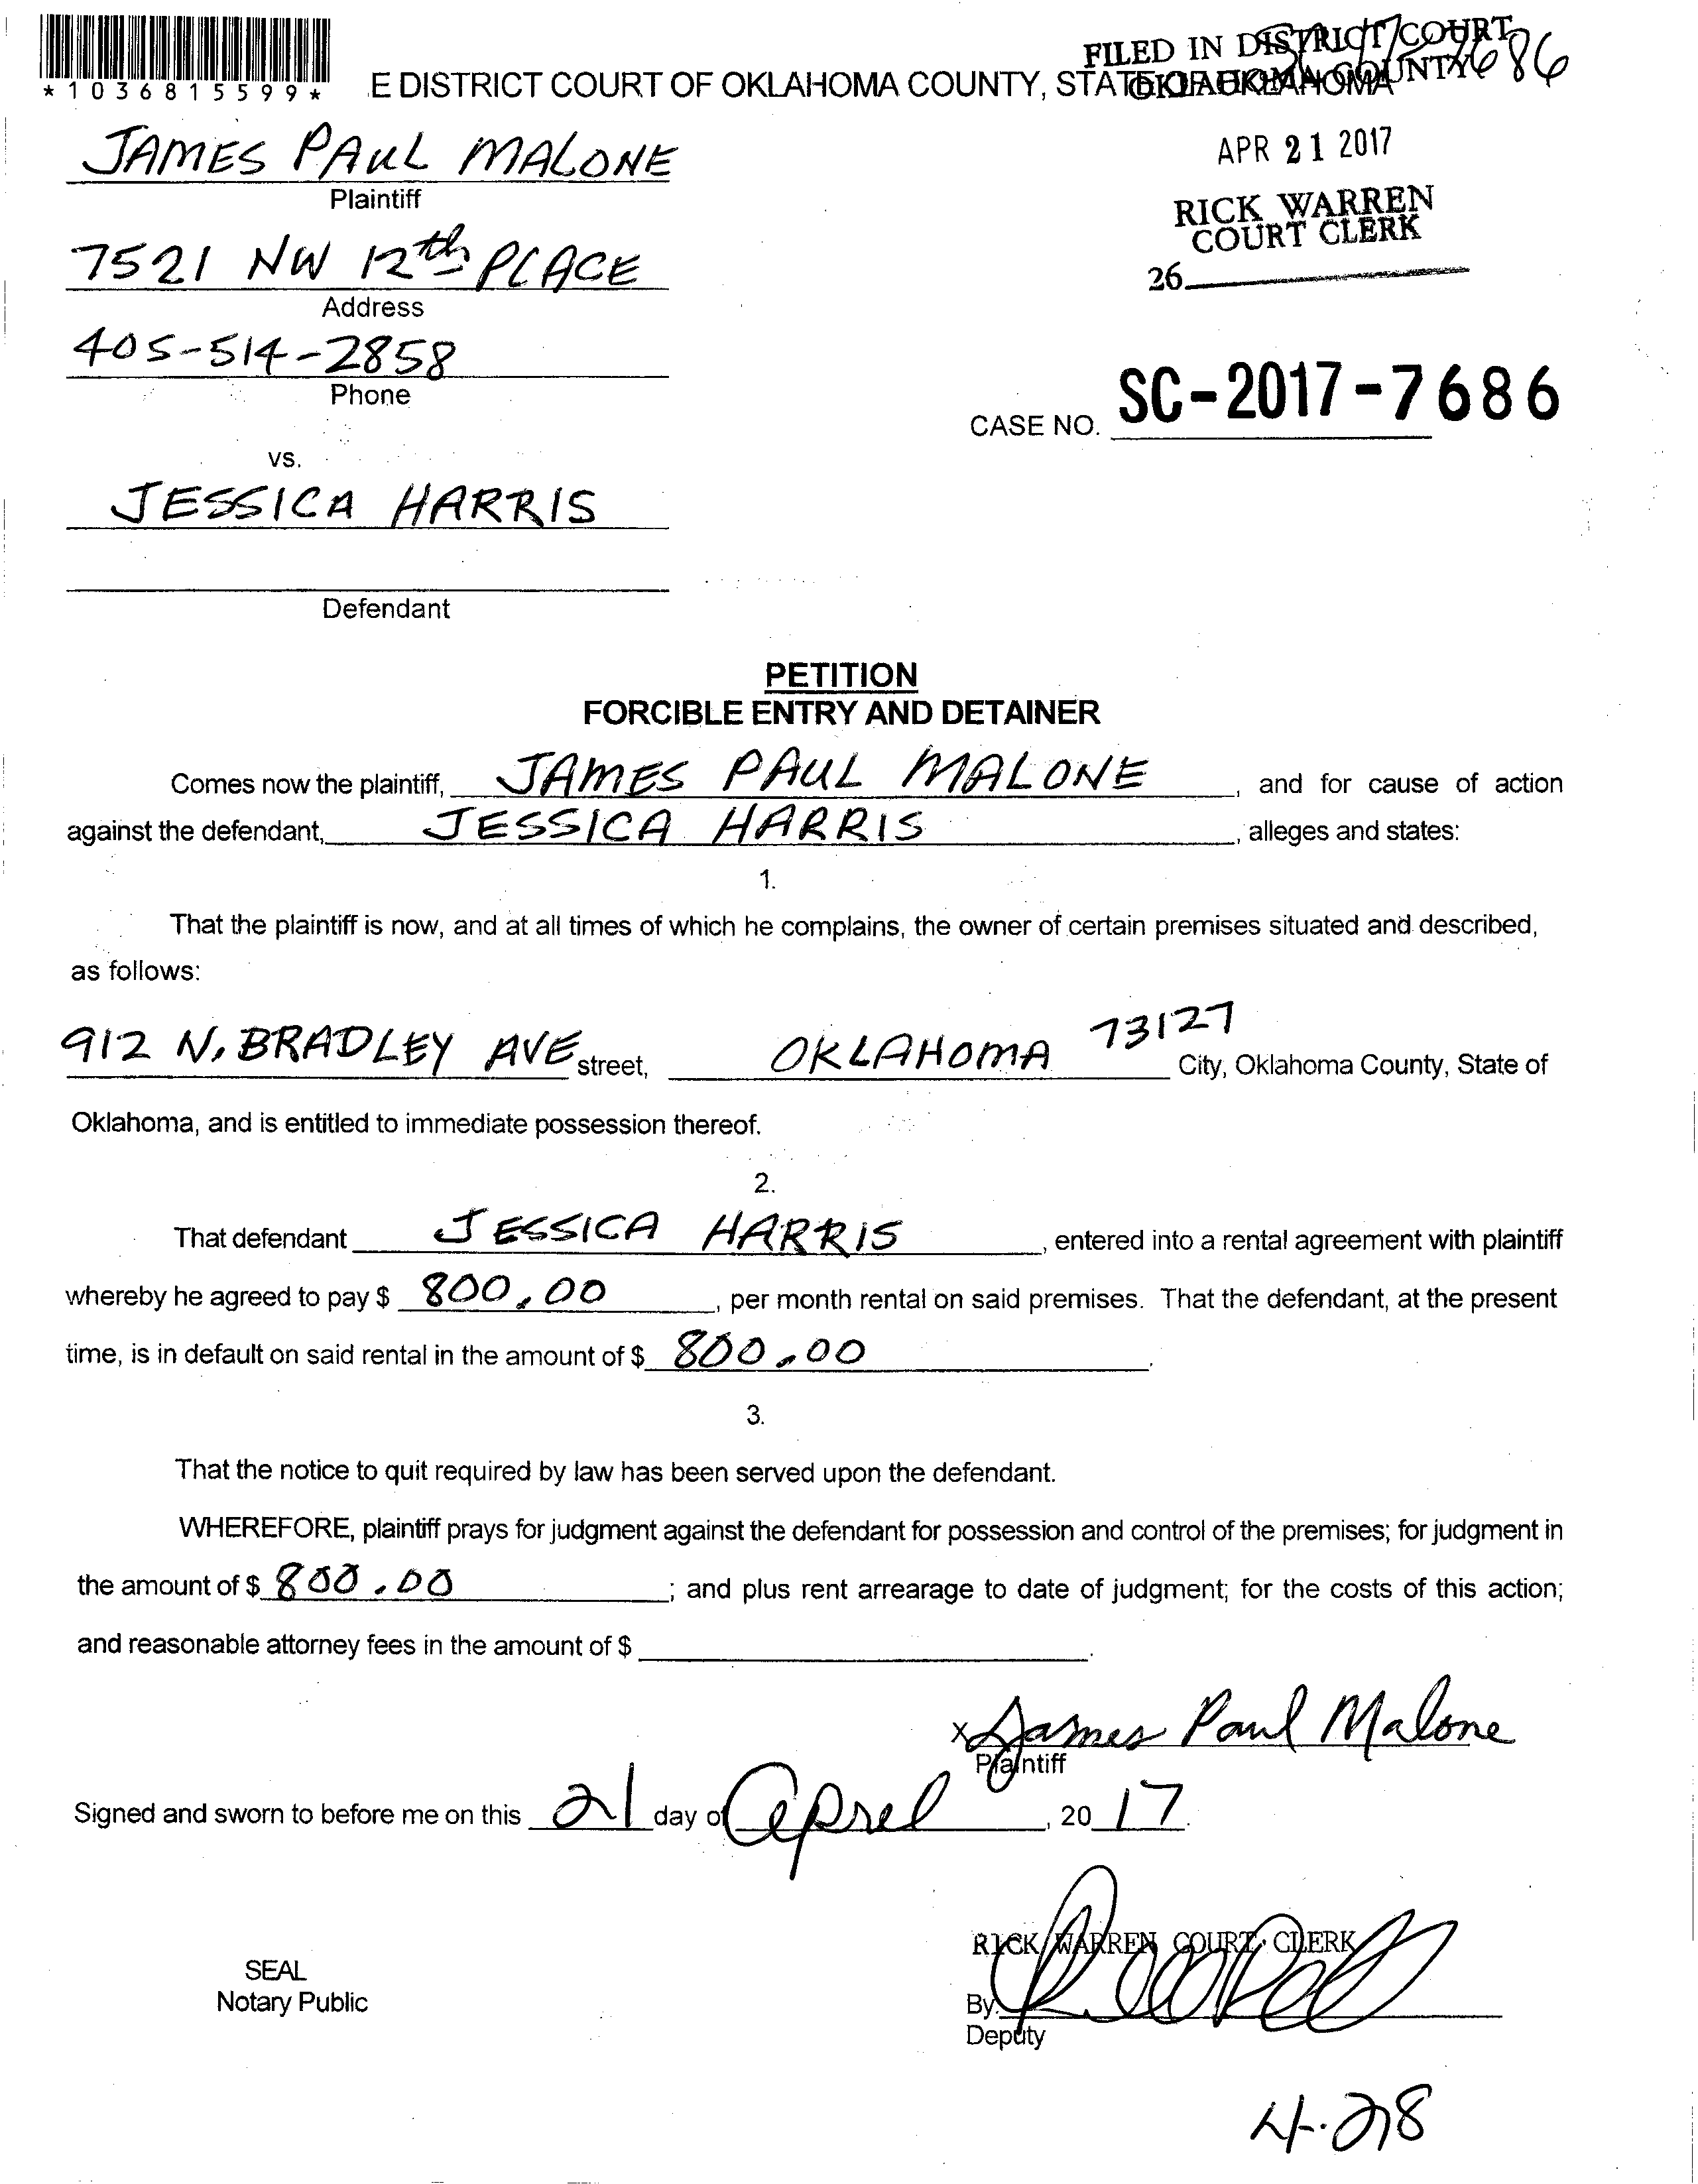 FILED IN DISTRICT COURT
OKLAHOMA COUNTY
*1036815599*
E DISTRICT COURT OF OKLAHOMA COUNTY, STATE OF OKLAHOMA
JAMES PAUL MALONE
Plaintiff
APR 21 2017
RICK WARREN
COURT CLERK
26
7521 NW 12th PLACE
Address
405-514-2858
Phone
CASE NO. SC-2017-7686
vs.
JESSICA HARRIS
Defendant
PETITION
FORCIBLE ENTRY AND DETAINER
Comes now the plaintiff, JAMES PAUL MALONE, and for cause of action
against the defendant, JESSICA HARRIS, alleges and states:
1.
That the plaintiff is now, and at all times of which he complains, the owner of certain premises situated and described,
as follows:
912 N. BRADLEY AVE street, OKLAHOMA 73127 City, Oklahoma County, State of
Oklahoma, and is entitled to immediate possession thereof.
2.
That defendant JESSICA HARRIS, entered into a rental agreement with plaintiff
whereby he agreed to pay $ 800.00, per month rental on said premises. That the defendant, at the present
time, is in default on said rental in the amount of $ 800.00.
3.
That the notice to quit required by law has been served upon the defendant.
WHEREFORE, plaintiff prays for judgment against the defendant for possession and control of the premises; for judgment in
the amount of $ 800.00; and plus rent arrearage to date of judgment; for the costs of this action;
and reasonable attorney fees in the amount of $ .
x James Paul Malone
Plaintiff
Signed and sworn to before me on this 21 day of April, 2017.
RICK WARREN COURT CLERK
SEAL
Notary Public
By:
Deputy
4-28